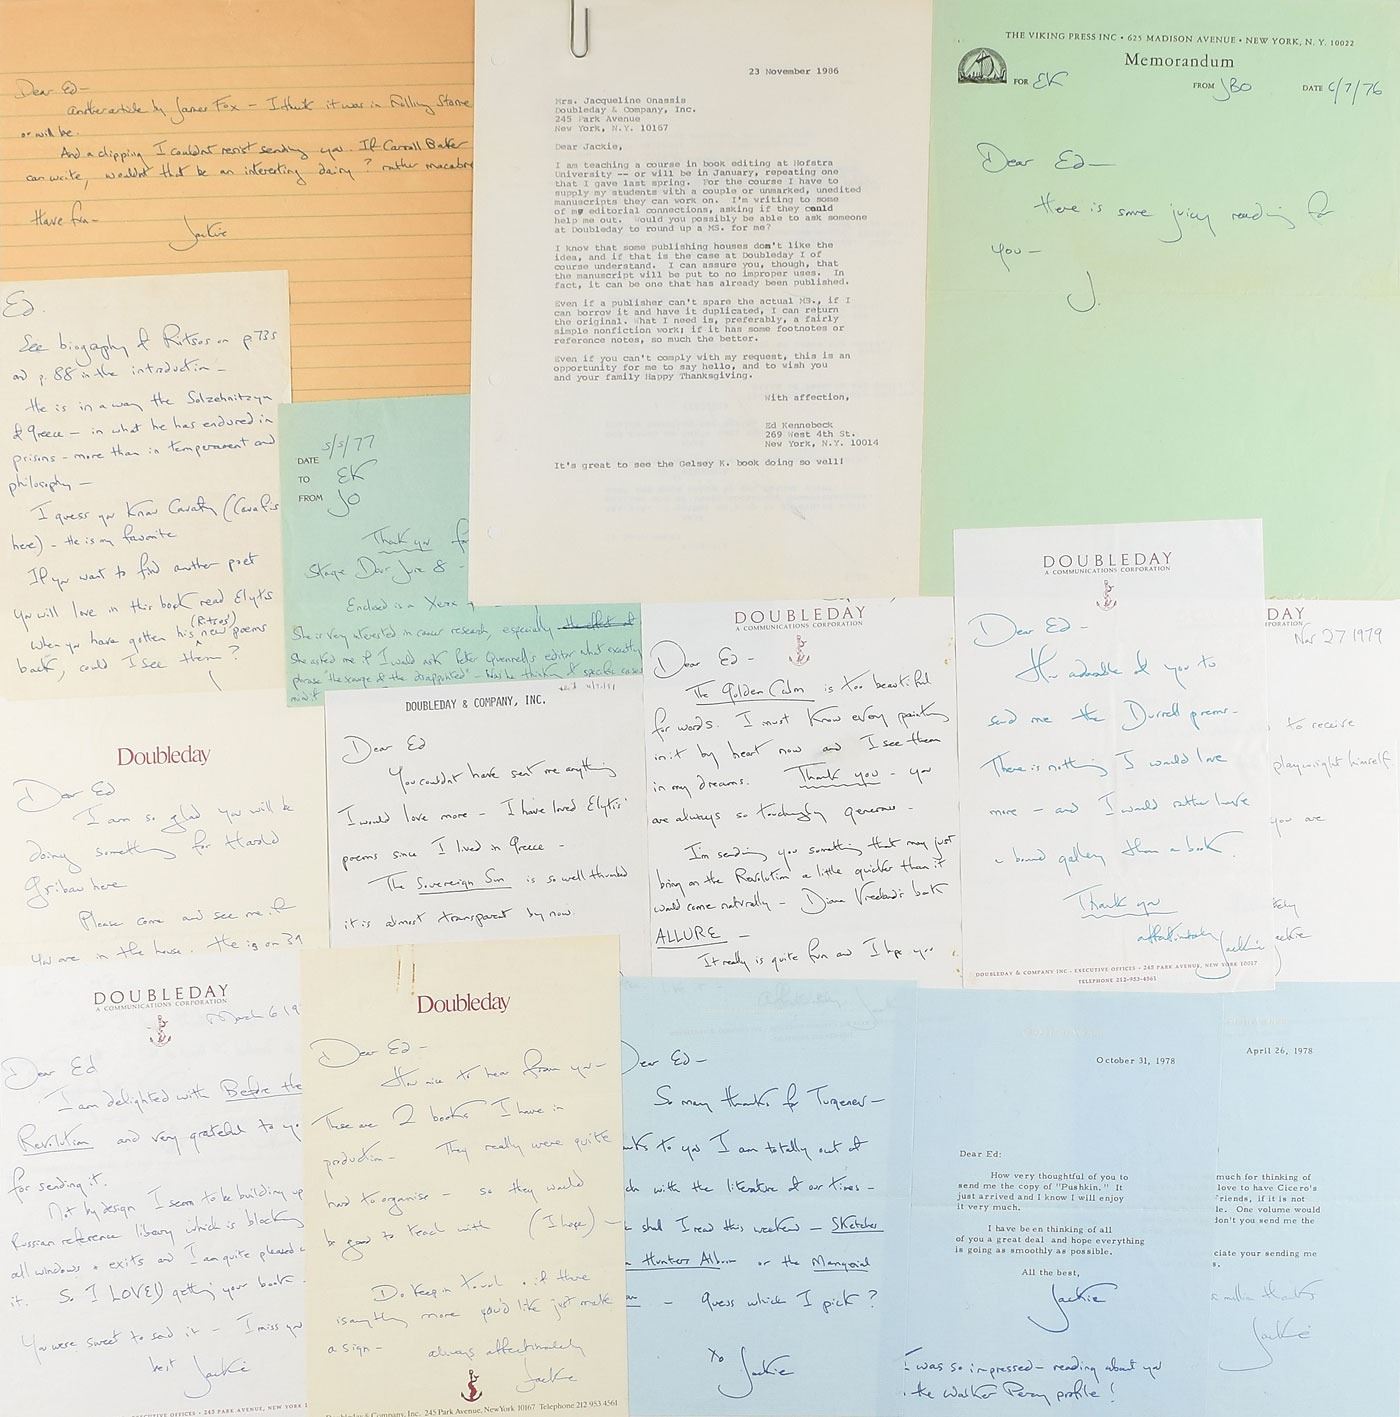 Dear Ed—
Another article by James Fox — I think it was in Rolling Stone
or will be.
And a clipping I couldn't resist sending you. If Carroll Baker
can write, wouldn't that be an interesting dairy? rather macabre
Have fun—
Jackie
23 November 1986
Mrs. Jacqueline Onassis
Doubleday & Company, Inc.
245 Park Avenue
New York, N.Y. 10167
Dear Jackie,
I am teaching a course in book editing at Hofstra
University -- or will be in January, repeating one
that I gave last spring. For the course I have to
supply my students with a couple or unmarked, unedited
manuscripts they can work on. I'm writing to some
of my editorial connections, asking if they could
help me out. Would you possibly be able to ask someone
at Doubleday to round up a MS. for me?
I know that some publishing houses don't like the
idea, and if that is the case at Doubleday I of
course understand. I can assure you, though, that
the manuscript will be put to no improper uses. In
fact, it can be one that has already been published.
Even if a publisher can't spare the actual MS., if I
can borrow it and have it duplicated, I can return
the original. What I need is, preferably, a fairly
simple nonfiction work; if it has some footnotes or
reference notes, so much the better.
Even if you can't comply with my request, this is an
opportunity for me to say hello, and to wish you
and your family Happy Thanksgiving.
With affection,
Ed Kennebeck
269 West 4th St.
New York, N.Y. 10014
It's great to see the Gelsey K. book doing so well!
THE VIKING PRESS INC • 625 MADISON AVENUE • NEW YORK, N. Y. 10022
Memorandum
FOR EK FROM JBO DATE 6/7/76
Dear Ed—
Here is some juicy reading for
you—
J.
Ed.
See biography of Ritsos on p.735
and p. 88 in the introduction—
He is in a way the Solzehnitzyn
of Greece — in what he has endured in
prisons — more than in temperament and
philosophy —
I guess you know Cavafy (Cavafis
here) — He is my favorite
If you want to find another poet
you will love in this book read Elytis
When you have gotten his (Ritsos') new poems
back, could I see them?
DATE 5/5/77
TO EK
FROM JO
Thank you for
Stage Door June 8 —
Enclosed is a Xerox
She is very interested in cancer research, especially the effect of
She asked me if I would ask Peter Quennell's editor what exactly
phrase "the range of the disappointed" — Was he thinking of specific cases
DOUBLEDAY
A COMMUNICATIONS CORPORATION
Dear Ed —
The Golden Calm is too beautiful
for words. I must know every painting
in it by heart now and I see them
in my dreams. Thank you — you
are always so touchingly generous —
I'm sending you something that may just
bring on the Revolution a little quicker than it
would come naturally — Diana Vreeland's book
ALLURE —
It really is quite fun and I hope you
DOUBLEDAY
A COMMUNICATIONS CORPORATION
Dear Ed —
How adorable of you to
send me the Durrell poems—
There is nothing I would love
more — and I would rather have
a bound galley than a book.
Thank you
affectionately
Jackie
DOUBLEDAY & COMPANY INC · EXECUTIVE OFFICES · 245 PARK AVENUE, NEW YORK 10017
TELEPHONE 212-953-4561
DAY
PORATION
Nov 27 1979
to receive
playwright himself.
you are
Jackie
DOUBLEDAY & COMPANY, INC.
Dear Ed
You couldn't have sent me anything
I would love more — I have loved Elytis'
poems since I lived in Greece —
The Sovereign Sun is so well thumbed
it is almost transparent by now.
Doubleday
Dear Ed
I am so glad you will be
doing something for Harold
Gribau here
Please come and see me if
you are in the house. He is on 39
DOUBLEDAY
A COMMUNICATIONS CORPORATION
March 6 19
Dear Ed
I am delighted with Before the
Revolution and very grateful to you
for sending it.
Not by design I seem to be building up
Russian reference library which is blocking
all windows & exits and I am quite pleased
it. So I LOVE!) getting your book
You were sweet to send it — I miss you
best Jackie
EXECUTIVE OFFICES · 245 PARK AVENUE, NEW YORK 1
Doubleday
Dear Ed—
How nice to hear from you—
These are 2 books I have in
production— They really were quite
hard to organise — so they would
be good to teach with (I hope) —
Do keep in touch & if there
is anything more you'd like just make
a sign — always affectionately
Jackie
Doubleday & Company, Inc. 245 Park Avenue, New York 10167 Telephone 212 953 4561
Dear Ed—
So many thanks for Turgenev—
Thanks to you I am totally out of
with the literature of our times —
shall I read this weekend — Sketches
Hunters Album or the Mangerial
— Guess which I pick?
xo Jackie
October 31, 1978
Dear Ed:
How very thoughtful of you to
send me the copy of "Pushkin." It
just arrived and I know I will enjoy
it very much.
I have been thinking of all
of you a great deal and hope everything
is going as smoothly as possible.
All the best,
Jackie
I was so impressed — reading about you
in the Walker Percy profile!
April 26, 1978
much for thinking of
love to have Cicero's
riends, if it is not
le. One volume would
don't you send me the
ciate your sending me
s.
a million thanks
Jackie